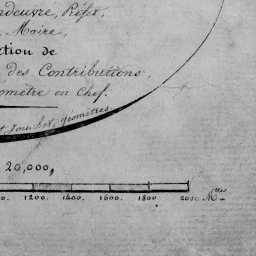 ndeuvre, Préfet,
Maire,
ction de
des Contributions,
omètre en Chef.
géomètres
20,000,
00. 1200. 1400. 1600. 1800 2000 Mtres